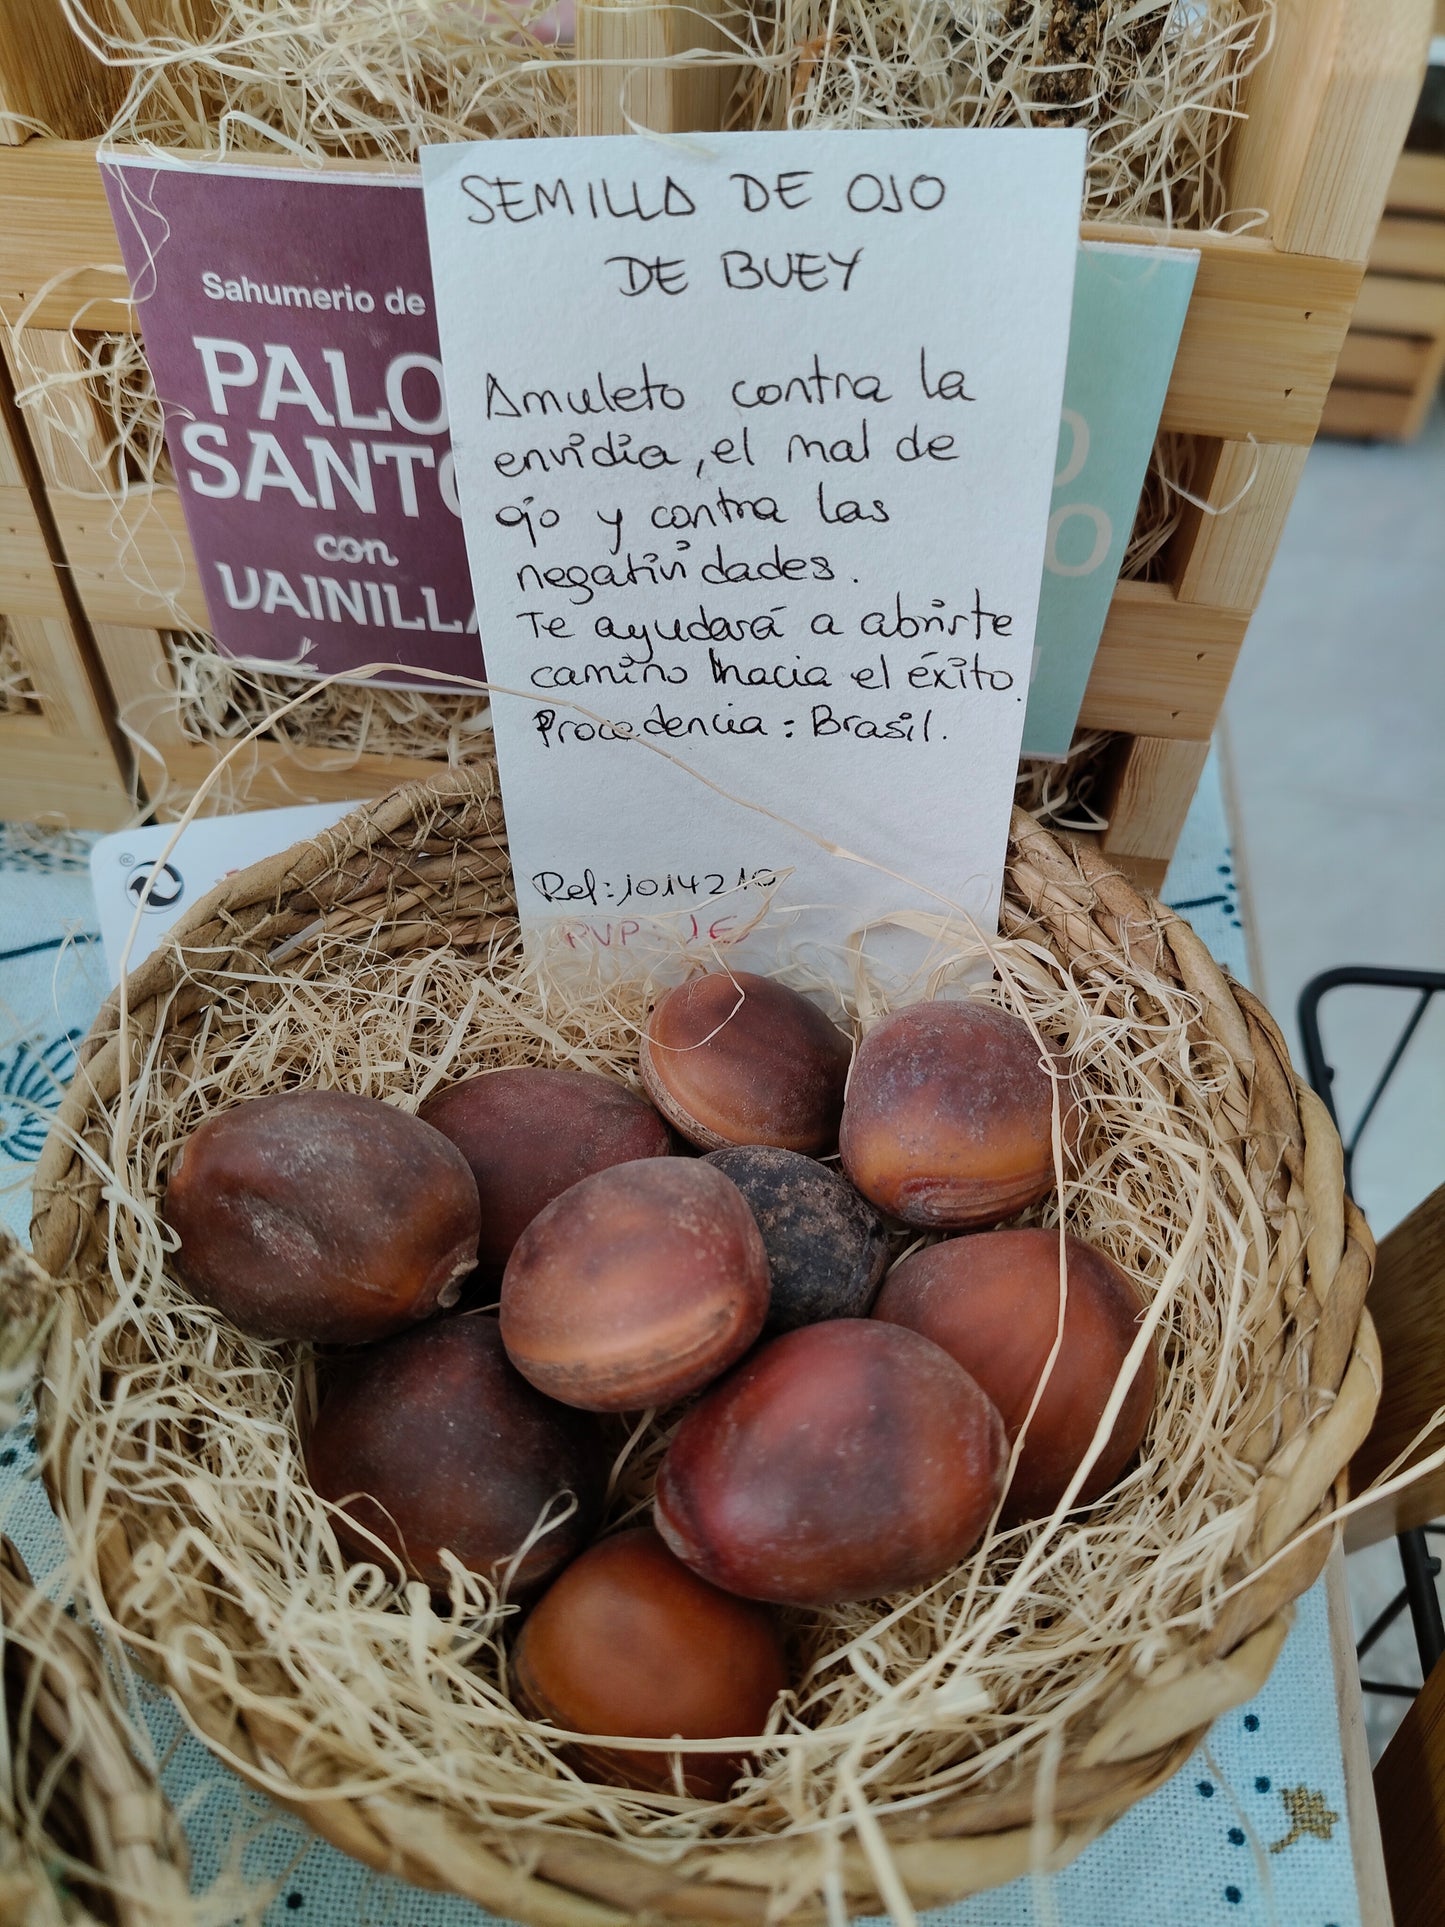 SEMILLA DE OJO
DE BUEY
Amuleto contra la
envidia, el mal de
ojo y contra las
negatividades.
Te ayudará a abrirte
camino hacia el éxito.
Procedencia: Brasil.
Ref: 1014210
PVP: 1€
Sahumerio de
PALO
SANTO
con
VAINILLA
®